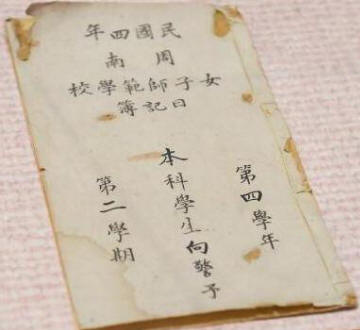 民國四年
周南
女子師範學校
日記簿
第四學年
本科學生向警予
第二學期